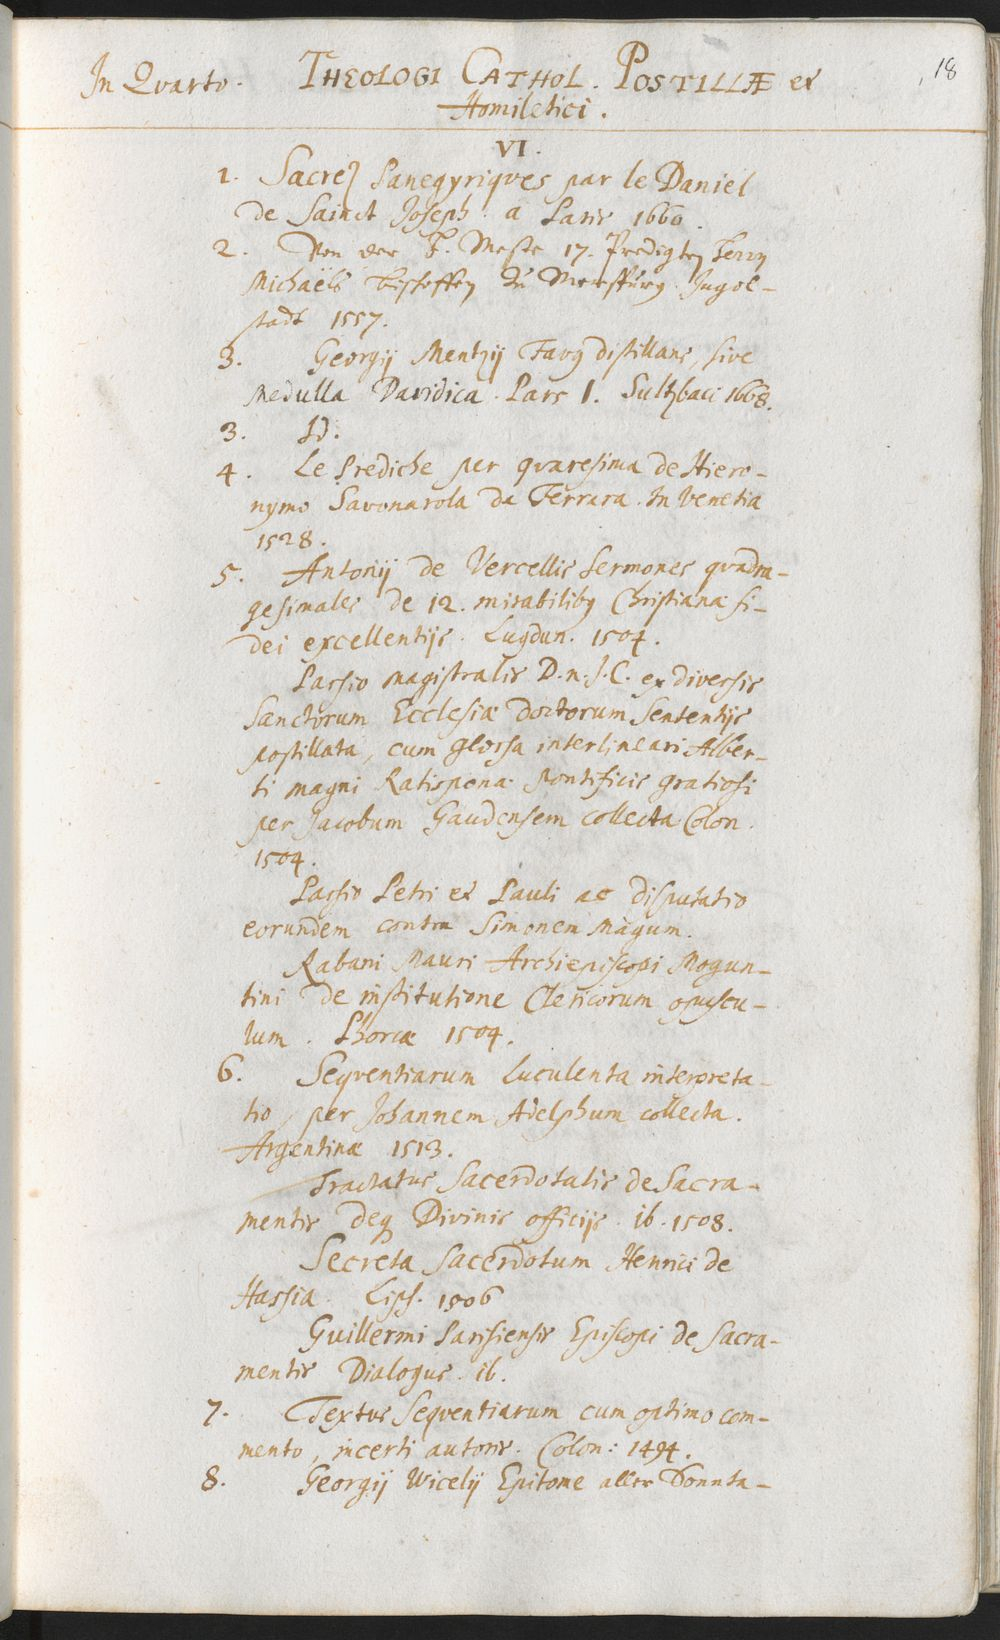 18
In Qvarto. THEOLOGI CATHOL. POSTILLÆ et
Homiletici.
VI.
1. Sacrez Panegyriqves par le Daniel
de Sainct Joseph. a Paris 1660.
2. Von der H. Messe 17. Predigten Herrn
Michaëls Bischoffen zu Merspurg. Ingol-
stadt 1557.
3. Georgij Mentzij Favus distillans, sive
Medulla Davidica. Pars I. Sultzbaci 1668.
3. Id.
4. Le Prediche per qvaresima de Hiero-
nymo Savonarola da Ferrara. In Venetia
1528.
5. Antonij de Vercellis Sermones qvadra-
gesimales de 12. mirabilibus Christianæ fi-
dei excellentijs. Lugdun. 1504.
Passio magistralis D.n.J.C. ex diversis
Sanctorum Ecclesiæ doctorum Sententijs
postillata, cum glossa interlineari Alber-
ti magni Ratispona. pontificis gratiosi
per Jacobum Gaudensem collecta Colon.
1504.
Passio Petri et Pauli ac disputatio
eorundem contra Simonem Magum.
Rabani Mauri Archiepiscopi Mogun-
tini de institutione Clericorum opuscu-
lum. Phorcæ 1504.
6. Seqventiarum luculenta interpreta-
tio, per Johannem Adelphum collecta.
Argentinæ 1513.
Tractatus Sacerdotalis de Sacra-
mentis deq Divinis officijs. ib. 1508.
Secreta Sacerdotum Henrici de
Hassia. Lips. 1506
Guillermi Parisiensis Episcopi de Sacra-
mentis Dialogus. ib.
7. Textus Seqventiarum cum optimo com-
mento, incerti autoris. Colon: 1494.
8. Georgij Wicelij Epitome aller Donnta-